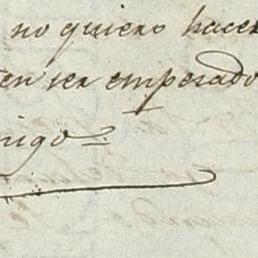 no quiero hacer
en ser emperado
migo